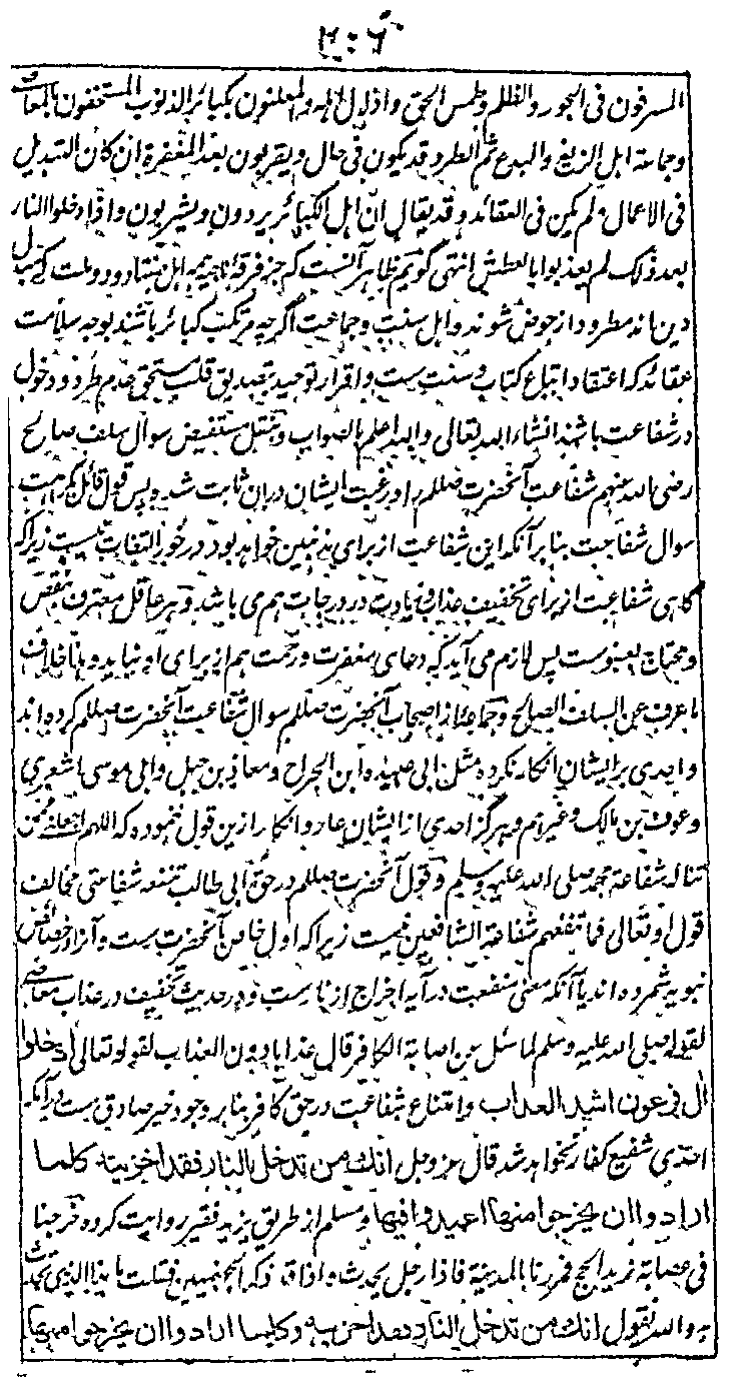 ۲۰۶
المسرفون فی الجور والظلم وطمس الحق واذلال اهله والمعلنون بکبائر الذنوب المستخفون بالمعاصی
وجماعة اهل الزیغ والبدع ثم الطرد قد یکون فی حال ویقربون بعد المغفرة ان کان التبدیل
فی الاعمال ولم یکن فی العقائد وقد یقال ان اهل الکبائر یردون ویشربون واذا دخلوا النار
بعد ذلک لم یعذبوا بالعطش انتهی گویم ظاهر آنست که جز فرقۀ ناجیه همه اهل هفتاد و دو ملت که مبدل
دین اند مطرود از حوض شوند و اهل سنت و جماعت اگرچه مرتکب کبائر باشند بوجه سلامت
عقائد که اعتقاد اتباع کتاب و سنت ست و اقرار توحید بتصدیق قلب مستحق عدم طرد و دخول
در شفاعت باشند انشاء الله تعالی والله اعلم بالصواب و بنقل مستفیض سوال سلف صالح
رضی الله عنهم شفاعت آنحضرت صللم را و رغبت ایشان دران ثابت شده پس قول قائل بکراهت
سوال شفاعت بنابر آنکه این شفاعت از برای مذنبین خواهد بود در خور التفات نیست زیراکه
گاهی شفاعت از برای تخفیف عذاب و زیادت در درجات هم می باشد و هر عاقل معترف بنقص
و محتاج بعفوست پس لازم می آید که دعای مغفرت و رحمت هم از برای او نباید و هذا خلاف
ما عرف عن السلف الصالح و جماعۀ از اصحاب آنحضرت صللم سوال شفاعت آنحضرت صللم کرده اند
و احدی بر ایشان انکار نکرده مثل ابی عبیده ابن الجراح و معاذ بن جبل و ابی موسی اشعری
و عوف بن مالک و غیرهم و هرگز احدی از ایشان عار و انکار ازین قول ننموده که اللهم اجعلنی ممن
تناله شفاعة محمد صلی الله علیه وسلم و قول آنحضرت صللم در حق ابی طالب تنفعه شفاعتی مخالف
قول او تعالی فما تنفعهم شفاعة الشافعین نیست زیراکه اول خاص آنحضرت ست و آنرا در خصائص
نبویه شمرده اند یا آنکه معنی منفعت در آیه اخراج از نار ست و در حدیث تخفیف در عذاب معاصی
لقوله صلی الله علیه وسلم لما سئل عن اصابة الکافر قال عذابا دون العذاب لقوله تعالی ادخلوا
آل فرعون اشد العذاب و امتناع شفاعت در حق کافر بنابر وجود خبر صادق ست در آنکه
احدی شفیع کفار نخواهد شد قال عز وجل انک من تدخل النار فقد اخزیته کلما
ارادوا ان یخرجوا منها اعیدوا فیها و مسلم از طریق یزید فقیر روایت کرده خرجنا
فی عصابة نرید الحج فمررنا بالمدینة فاذا رجل یحدث واذا قد ذکر الجهنمیین فقلت ما هذا الذی تحدث
به والله یقول انک من تدخل النار فقد اخزیته وکلما ارادوا ان یخرجوا منها